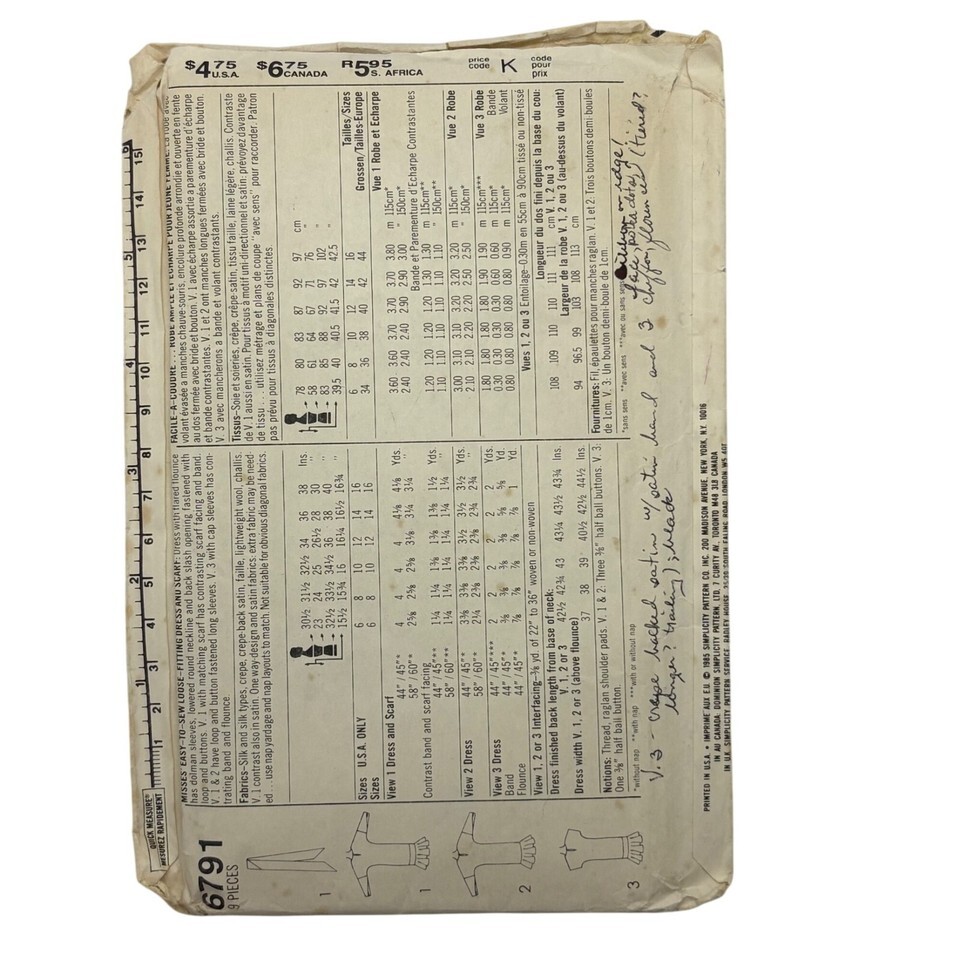 $4.75 U.S.A. $6.75 CANADA R5.95 S. AFRICA price code K code pour prix
QUICK MEASURE®
MESUREZ RAPIDEMENT
1 2 3 4 5 6 7 8 9 10 11 12 13 14 15
6791
9 PIECES
1
1
2
3
MISSES' EASY-TO-SEW LOOSE-FITTING DRESS AND SCARF: Dress with flared flounce
has dolman sleeves, lowered round neckline and back slash opening fastened with
loop and buttons. V. 1 with matching scarf has contrasting scarf facing and band.
V. 1 & 2 have loop and button fastened long sleeves. V. 3 with cap sleeves has con-
trasting band and flounce.
Fabrics—Silk and silk types, crepe, crepe-back satin, faille, lightweight wool, challis.
V. 1 contrast also in satin. One way-design and satin fabrics: extra fabric may be need-
ed ... use nap yardage and nap layouts to match. Not suitable for obvious diagonal fabrics.
30½ 31½ 32½ 34 36 38 Ins.
23 24 25 26½ 28 30 "
32½ 33½ 34½ 36 38 40 "
15½ 15¾ 16 16¼ 16½ 16¾ "
Sizes U.S.A. ONLY 6 8 10 12 14 16
Sizes 6 8 10 12 14 16
View 1 Dress and Scarf
44" / 45"** 4 4 4 4 4⅛ 4⅛ Yds.
58" / 60"** 2⅝ 2⅝ 2⅝ 3⅛ 3¼ 3¼ "
Contrast band and scarf facing
44" / 45"** 1¼ 1¼ 1⅜ 1⅜ 1⅜ 1½ Yds.
58" / 60"*** 1¼ 1¼ 1¼ 1¼ 1¼ 1¼ "
View 2 Dress 44" / 45"** 3⅜ 3⅜ 3⅜ 3½ 3½ 3½ Yds.
58" / 60"** 2¼ 2⅜ 2⅜ 2¾ 2¾ 2¾ "
View 3 Dress 44" / 45"**** 2 2 2 2 2 2 Yds.
Band 44" / 45"** ⅜ ⅜ ⅜ ⅜ ⅝ ⅝ Yd.
Flounce 44" / 45"** ⅞ ⅞ ⅞ ⅞ ⅞ 1 Yd.
View 1, 2 or 3 Interfacing—⅜ yd. of 22" to 36" woven or non-woven
Dress finished back length from base of neck:
V. 1, 2 or 3 42½ 42¾ 43 43¼ 43½ 43¾ Ins.
Dress width V. 1, 2 or 3 (above flounce)
37 38 39 40½ 42½ 44½ Ins.
Notions: Thread, raglan shoulder pads. V. 1 & 2: Three ⅜" half ball buttons. V. 3:
One ⅜" half ball button.
*without nap **with nap ***with or without nap
FACILE-A-COUDRE ... ROBE AMPLE ET ECHARPE POUR JEUNE FEMME: La robe avec
volant évasée a manches chauve-souris, encolure profonde arrondie et ouverte en fente
au dos fermée avec bride et bouton. V. 1 avec écharpe assortie a parementure d'écharpe
et bande contrastantes. V. 1 et 2 ont manches longues fermées avec bride et bouton.
V. 3 avec mancherons a bande et volant contrastants.
Tissus—Soie et soieries, crêpe, crêpe satin, tissu faille, laine légère, challis. Contraste
de V. 1 aussi en satin. Pour tissus à motif uni-directionnel et satin: prévoyez davantage
de tissu ... utilisez métrage et plans de coupe "avec sens" pour raccorder. Patron
pas prévu pour tissus à diagonales distinctes.
78 80 83 87 92 97 cm
58 61 64 67 71 76 "
83 85 88 92 97 102 "
39.5 40 40.5 41.5 42 42.5 "
6 8 10 12 14 16 Tailles/Sizes
34 36 38 40 42 44 Grossen/Tailles-Europe
Vue 1 Robe et Echarpe
3.60 3.60 3.70 3.70 3.70 3.80 m 115cm*
2.40 2.40 2.40 2.90 2.90 3.00 150cm*
Bande et Parementure d'Echarpe Contrastantes
1.20 1.20 1.20 1.20 1.30 1.30 m 115cm**
1.10 1.10 1.10 1.10 1.10 1.10 150cm**
Vue 2 Robe
3.00 3.10 3.10 3.20 3.20 3.20 m 115cm*
2.10 2.10 2.20 2.20 2.50 2.50 150cm*
Vue 3 Robe
1.80 1.80 1.80 1.80 1.90 1.90 m 115cm***
Bande 0.30 0.30 0.30 0.30 0.60 0.60 m 115cm*
Volant 0.80 0.80 0.80 0.80 0.80 0.90 m 115cm*
Vues 1, 2 ou 3 Entoilage—0.30m en 55cm à 90cm tissé ou non-tissé
Longueur du dos fini depuis la base du cou:
108 109 110 110 111 111 cm V. 1, 2 ou 3
Largeur de la robe V. 1, 2 ou 3 (au-dessus du volant)
94 96.5 99 103 108 113 cm
Fournitures: Fil, épaulettes pour manches raglan. V. 1 et 2: Trois boutons demi-boules
de 1cm. V. 3: Un bouton demi-boule de 1cm.
*sans sens **avec sens ***avec ou sans sens
V.3 - crepe backed satin w/ satin band and
longer? trailing; black
edge!
polka dots? (tiered?
chiffon,
PRINTED IN U.S.A. • IMPRIME AUX E.U. © 1985 SIMPLICITY PATTERN CO. INC. 200 MADISON AVENUE, NEW YORK, N.Y. 10016
IN AU CANADA: DOMINION SIMPLICITY PATTERN LTD. 7 CURITY AV, TORONTO M4B 3L8 CANADA
IN U.K. SIMPLICITY PATTERN SERVICE